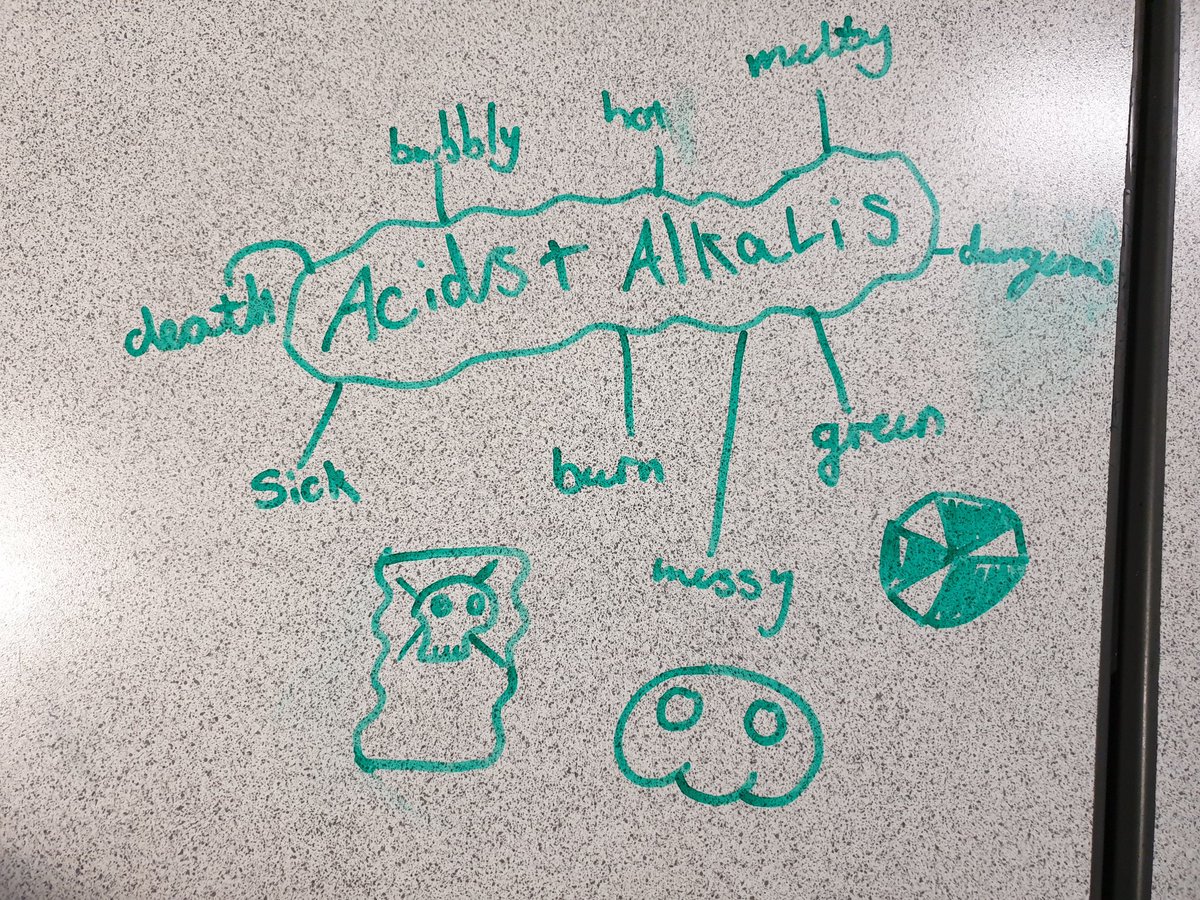 melty
hot
bubbly
Acids + Alkalis
dangerous
death
green
burn
sick
messy